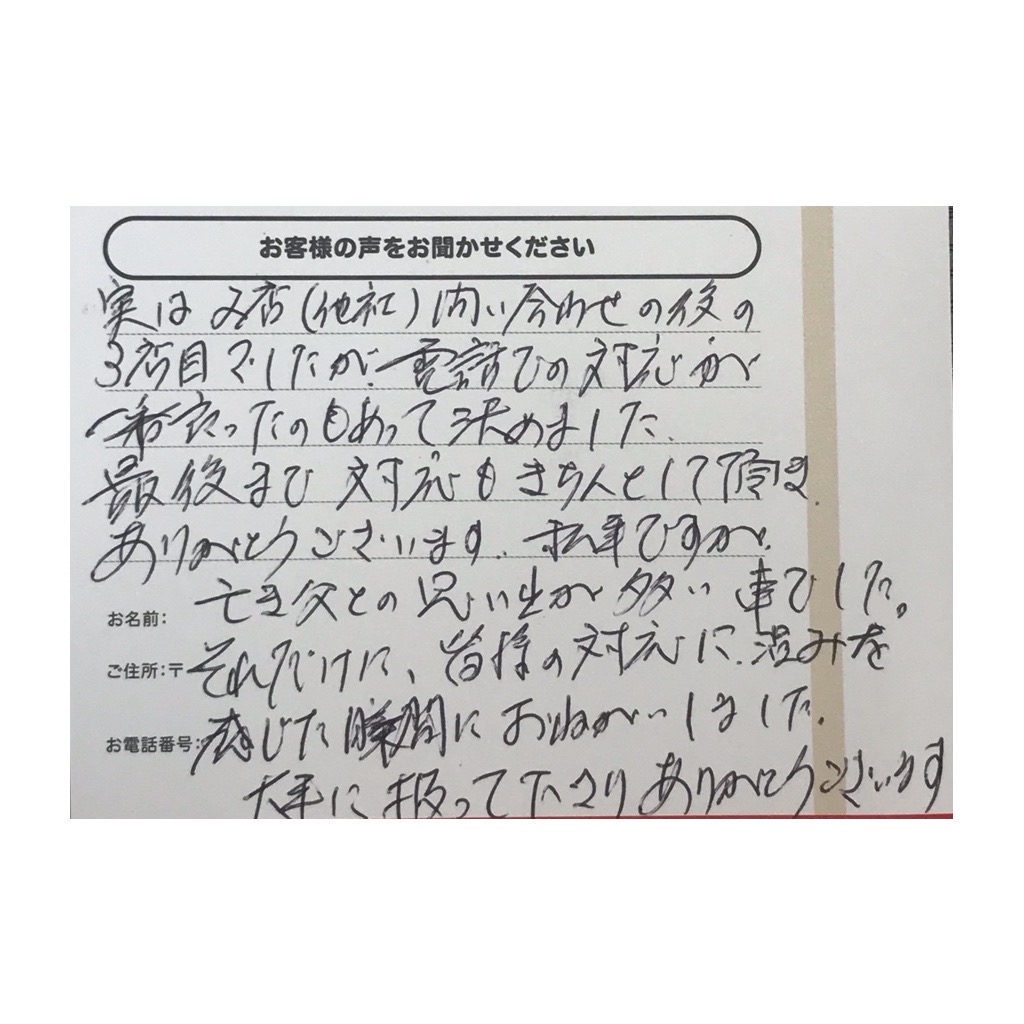 お客様の声をお聞かせください
実は2店(他社)問い合わせの後の
3店目でしたが、電話での対応が
一番良ったのもあって決めました。
最後まで対応もきちんとして頂き
ありがとうございます。私事ですが、
亡き父との思い出が多い車でした。
お名前:
それだけに、皆様の対応に温みを
ご住所:〒
感じた瞬間におねがいしました。
お電話番号:
大事に扱って下さりありがとうございます